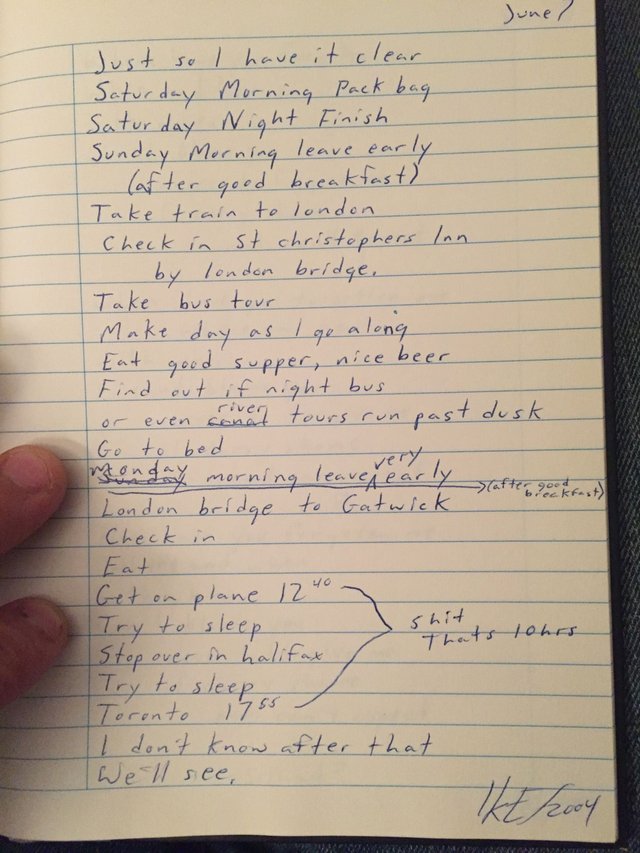 June 7
Just so I have it clear
Saturday Morning Pack bag
Saturday Night Finish
Sunday Morning leave early
(after good breakfast)
Take train to london
Check in St christophers Inn
by london bridge.
Take bus tour
Make day as I go along
Eat good supper, nice beer
Find out if night bus
or even canal river tours run past dusk
Go to bed
Sunday Monday morning leave very early (after good breakfast)
London bridge to Gatwick
Check in
Eat
Get on plane 12 40
Try to sleep
Stop over in halifax
Try to sleep
Toronto 17 55
shit
Thats 10hrs
I don't know after that
We'll see.
/2004